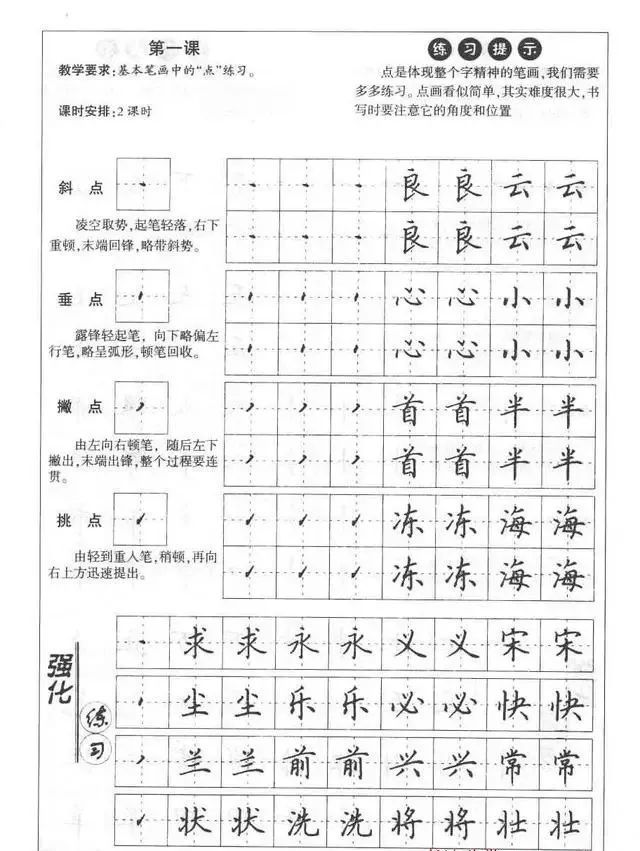 第一课
教学要求:基本笔画中的“点”练习。
课时安排:2课时
练习提示
点是体现整个字精神的笔画,我们需要
多多练习。点画看似简单,其实难度很大,书
写时要注意它的角度和位置
斜点
良良云云
凌空取势,起笔轻落,右下
重顿,末端回锋,略带斜势。
良良云云
垂点
心心小小
露锋轻起笔,向下略偏左
行笔,略呈弧形,顿笔回收。
心心小小
撇点
首首半半
由左向右顿笔,随后左下
撇出,末端出锋,整个过程要连
贯。
首首半半
挑点
冻冻海海
由轻到重人笔,稍顿,再向
右上方迅速提出。
冻冻海海
强化
练习
求求永永义义宋宋
尘尘乐乐必必快快
兰兰前前兴兴常常
状状洗洗将将壮壮